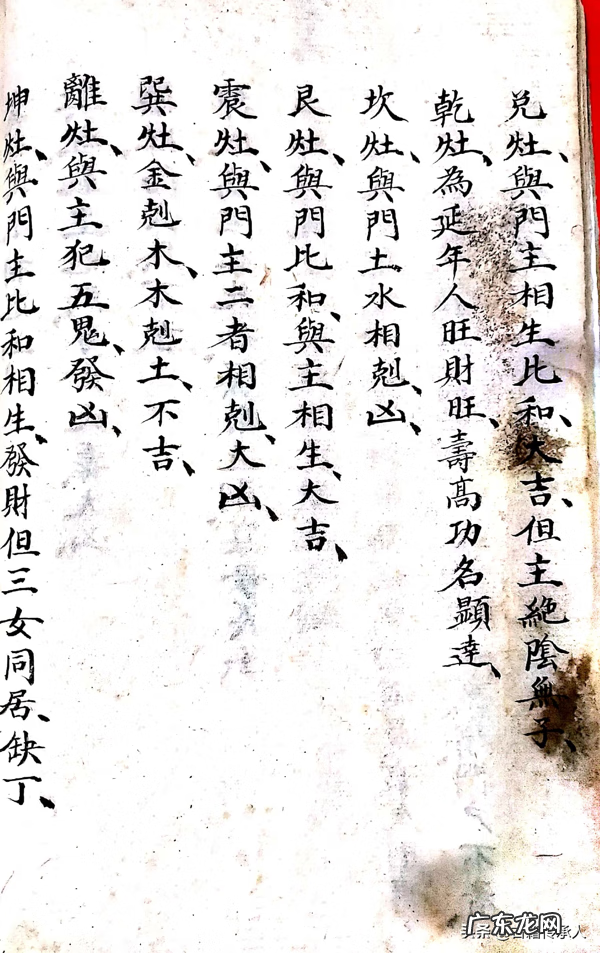 兌灶、與門主相生比和、大吉、但主絶陰無子、
乾灶、為延年人旺財旺、壽高功名顯達、
坎灶、與門土水相剋、凶、
艮灶、與門比和、與主相生、大吉、
震灶、與門主二者相剋、大凶、
巽灶、金剋木、木剋土、不吉、
離灶、與主犯五鬼、發凶、
坤灶、與門主比和相生、發財但三女同居、缺丁、
广东龙网